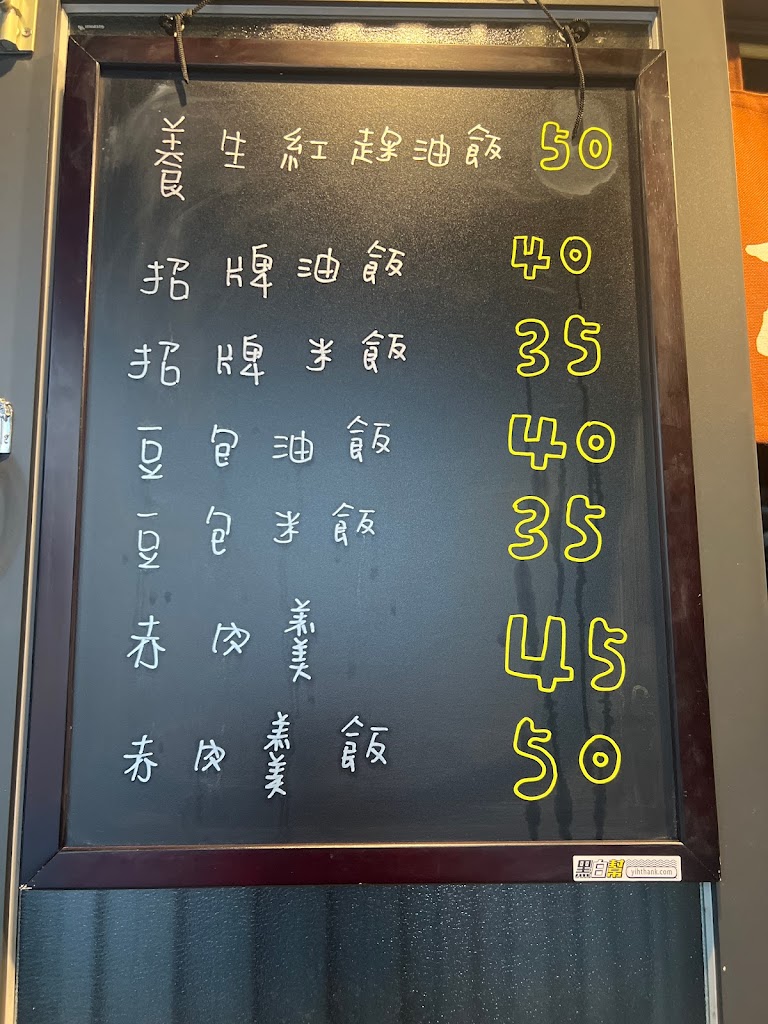 養生紅趖油飯 50
招牌油飯 40
招牌米飯 35
豆包油飯 40
豆包米飯 35
赤肉羹 45
赤肉羹飯 50
黑白幫 yihthank.com